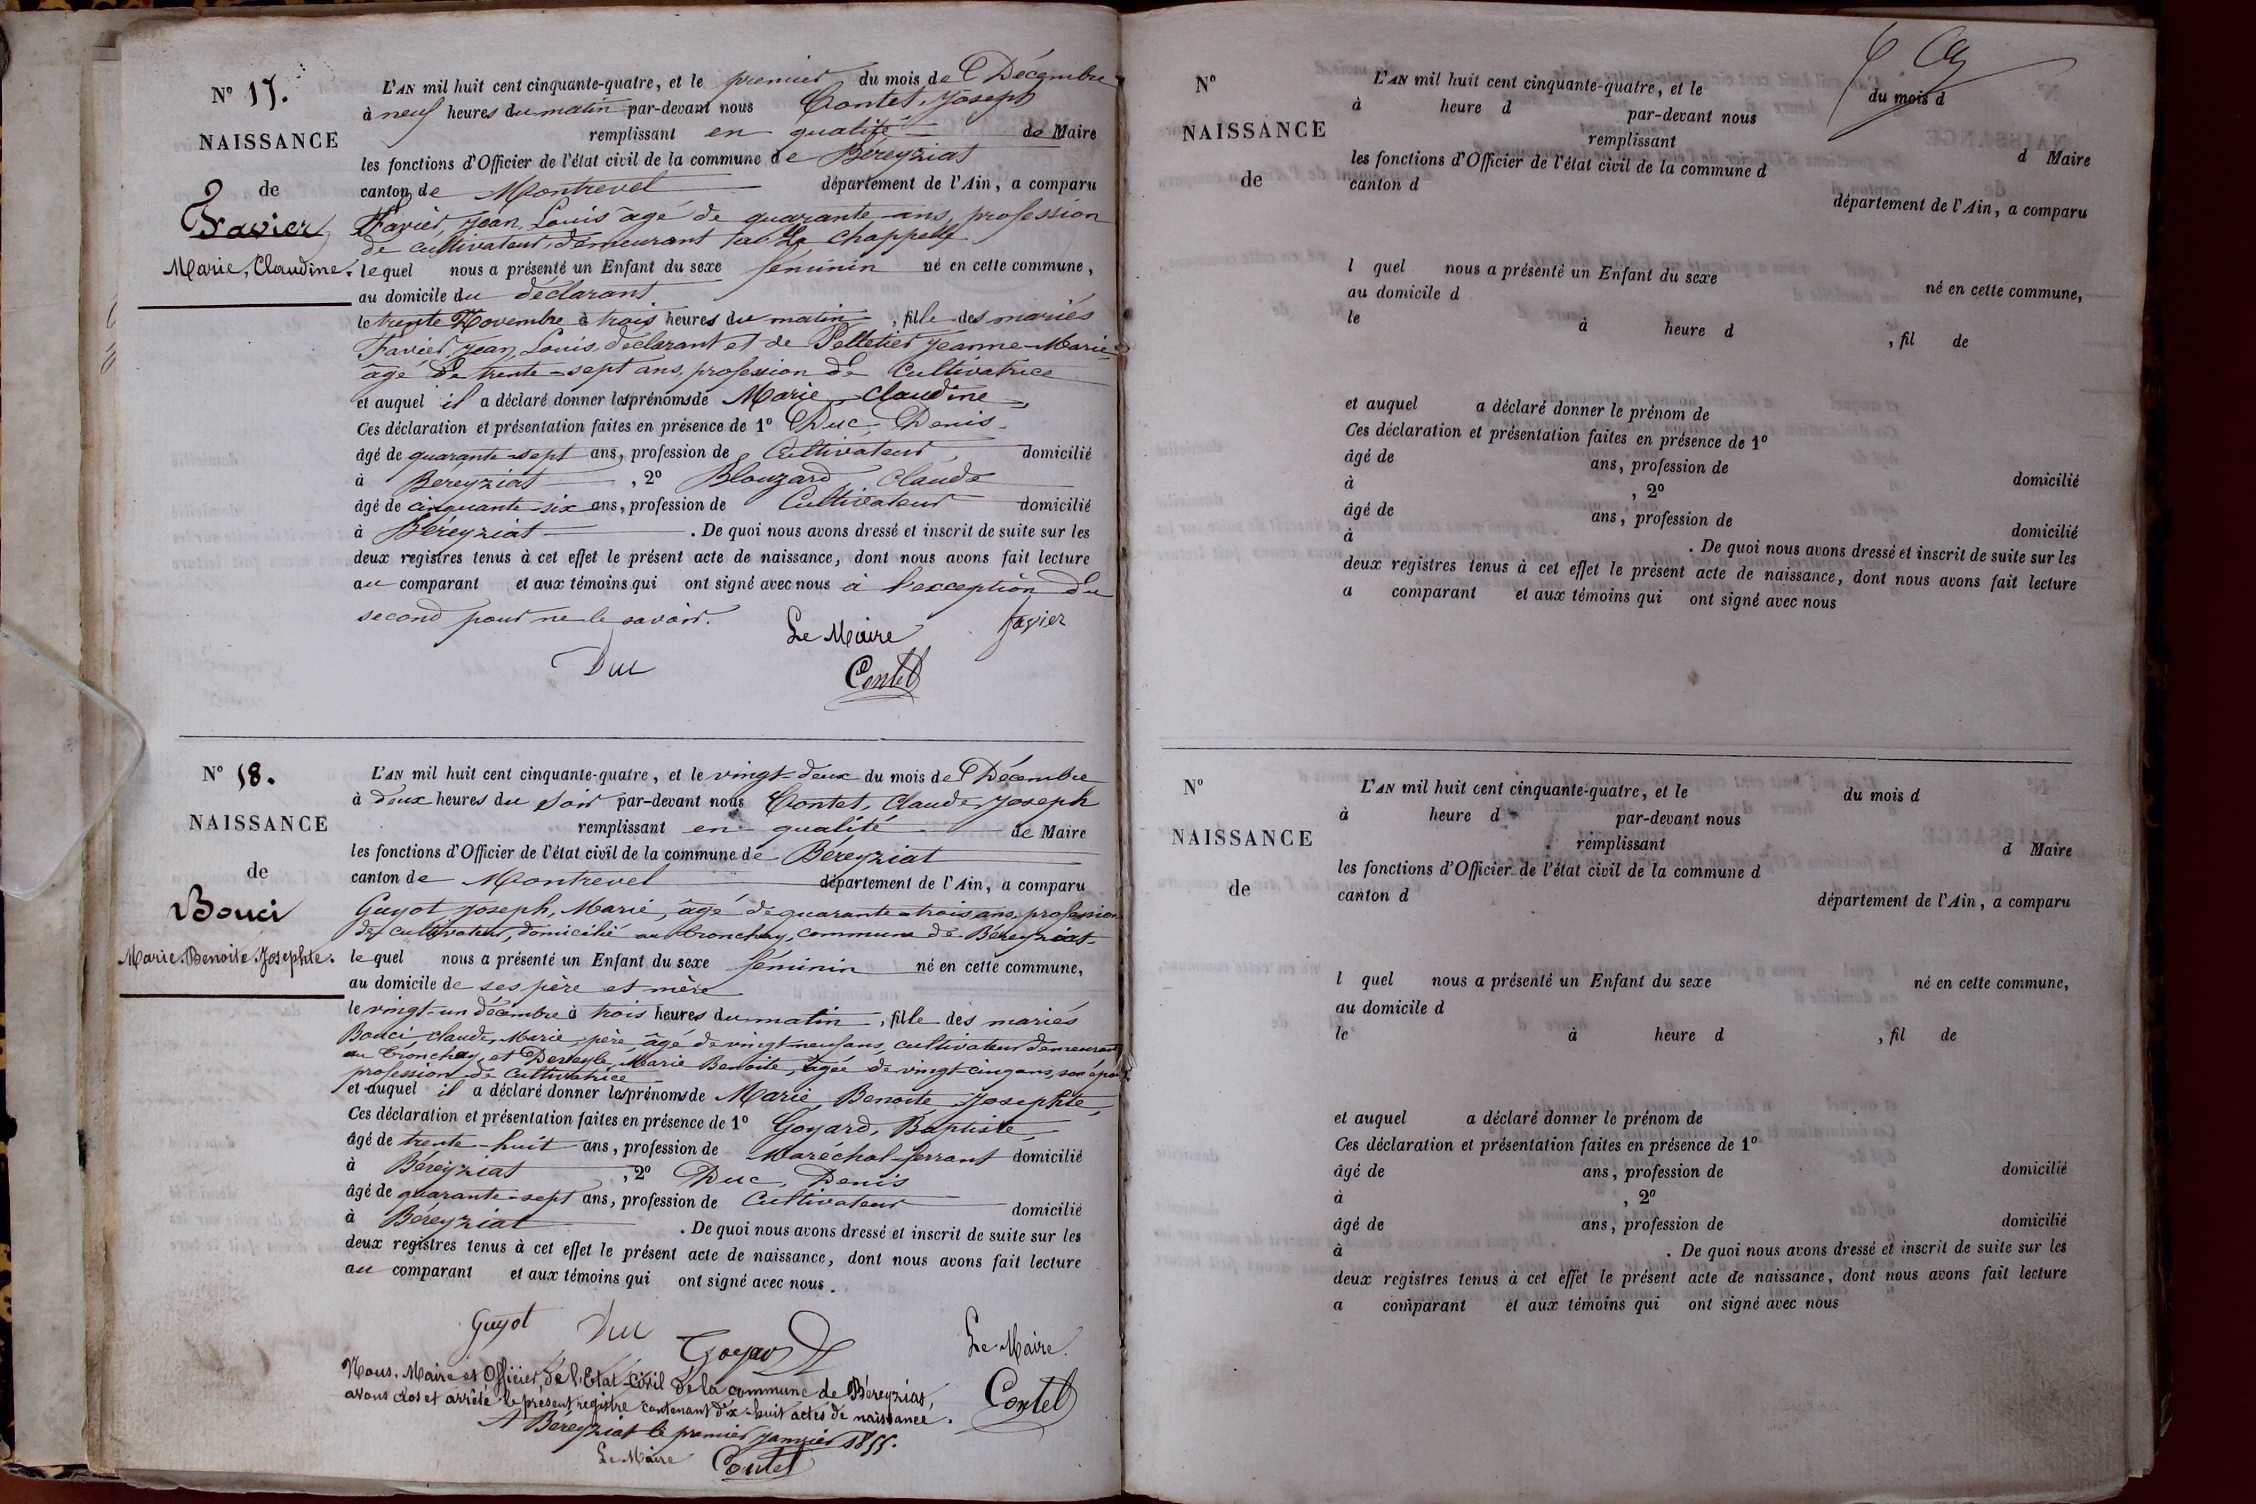 N° 17.
NAISSANCE
de
Favier
Marie, Claudine.
L'AN mil huit cent cinquante-quatre, et le premier du mois de Décembre
à neuf heures du matin par-devant nous Contet, Joseph
remplissant en qualité de Maire
les fonctions d'Officier de l'état civil de la commune de Béreyziat
canton de Montrevel département de l'Ain, a comparu
Favier, Jean, Louis âgé de quarante ans, profession
de cultivateur, demeurant à La Chappelle
lequel nous a présenté un Enfant du sexe féminin né en cette commune,
au domicile du déclarant
le trente Novembre à trois heures du matin, fille des mariés
Favier, Jean, Louis, déclarant et de Pelletier Jeanne-Marie
âgé de trente-sept ans, profession de Cultivatrice
et auquel il a déclaré donner les prénoms de Marie, Claudine
Ces déclaration et présentation faites en présence de 1° Duc, Denis
âgé de quarante-sept ans, profession de Cultivateur domicilié
à Béreyziat, 2° Blouzard, Claude
âgé de cinquante-six ans, profession de Cultivateur domicilié
à Béreyziat. De quoi nous avons dressé et inscrit de suite sur les
deux registres tenus à cet effet le présent acte de naissance, dont nous avons fait lecture
au comparant et aux témoins qui ont signé avec nous à l'exception du
second pour ne le savoir.
Le Maire favier
Duc Contet
N° 18.
NAISSANCE
de
Bouci
Marie, Benoite Josephte.
L'AN mil huit cent cinquante-quatre, et le vingt-deux du mois de Décembre
à deux heures du soir par-devant nous Contet, Claude, Joseph
remplissant en qualité de Maire
les fonctions d'Officier de l'état civil de la commune de Béreyziat
canton de Montrevel département de l'Ain, a comparu
Guyot Joseph, Marie, âgé de quarante-trois ans, profession
de cultivateur, domicilié au Tronchay, commune de Béreyziat
lequel nous a présenté un Enfant du sexe féminin né en cette commune,
au domicile de ses père et mère
le vingt-un décembre à trois heures du matin, fille des mariés
Bouci, Claude, Marie, père, âgé de vingt neuf ans, cultivateur demeurant
au Tronchay, et Marie Benoite, âgée de vingt-cinq ans, son épouse
profession de Cultivatrice
et auquel il a déclaré donner les prénoms de Marie, Benoite Josephte,
Ces déclaration et présentation faites en présence de 1° Goyard, Baptiste,
âgé de trente-huit ans, profession de Maréchal-ferrant domicilié
à Béreyziat, 2° Duc, Denis
âgé de quarante-sept ans, profession de Cultivateur domicilié
à Béreyziat. De quoi nous avons dressé et inscrit de suite sur les
deux registres tenus à cet effet le présent acte de naissance, dont nous avons fait lecture
au comparant et aux témoins qui ont signé avec nous.
Guyot Duc Goyard Le Maire
Contet
Nous, Maire et Officier de l'Etat-Civil de la commune de Béreyziat,
avons clos et arrêté le présent registre contenant dix-huit actes de naissance.
A Béreyziat le premier Janvier 1855.
Le Maire Contet
N°
NAISSANCE
de
L'AN mil huit cent cinquante-quatre, et le du mois d
à heure d par-devant nous
remplissant d Maire
les fonctions d'Officier de l'état civil de la commune d
canton d département de l'Ain, a comparu
l quel nous a présenté un Enfant du sexe né en cette commune,
au domicile d
le à heure d , fil de
et auquel a déclaré donner le prénom de
Ces déclaration et présentation faites en présence de 1°
âgé de ans, profession de domicilié
à , 2°
âgé de ans, profession de domicilié
à . De quoi nous avons dressé et inscrit de suite sur les
deux registres tenus à cet effet le présent acte de naissance, dont nous avons fait lecture
a comparant et aux témoins qui ont signé avec nous
N°
NAISSANCE
de
L'AN mil huit cent cinquante-quatre, et le du mois d
à heure d par-devant nous
remplissant d Maire
les fonctions d'Officier de l'état civil de la commune d
canton d département de l'Ain, a comparu
l quel nous a présenté un Enfant du sexe né en cette commune,
au domicile d
le à heure d , fil de
et auquel a déclaré donner le prénom de
Ces déclaration et présentation faites en présence de 1°
âgé de ans, profession de domicilié
à , 2°
âgé de ans, profession de domicilié
à . De quoi nous avons dressé et inscrit de suite sur les
deux registres tenus à cet effet le présent acte de naissance, dont nous avons fait lecture
a comparant et aux témoins qui ont signé avec nous